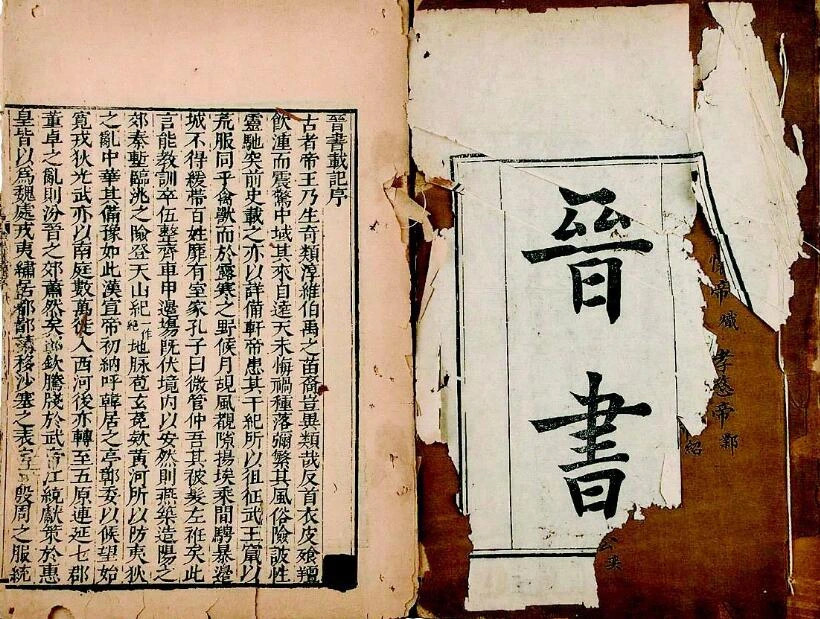 帝熾　孝愍帝鄴
紹
晉書
晉書載記序
古者帝王乃生奇類淳維伯禹之苗裔豈異類哉反首衣皮飧羶
飲湩而震驚中域其來自遠天未悔禍種落彌繁其風俗險詖性
靈馳突前史載之亦以詳備軒帝患其干紀所以徂征武王竄以
荒服同乎禽獸而於露寒之野候月覘風覩隙揚埃乘間騁暴邊
城不得緩帶百姓靡有室家孔子曰微管仲吾其被髮左衽矣此
言能教訓卒伍整齊車甲邊塲既伏境內以安然則燕築造陽之
郊秦塹臨洮之險登天山紀一作絕地脉苞玄菟款黃河所以防夷狄
之亂中華其備豫如此漢宣帝初納呼韓居之亭鄣委以候望始
寬戎狄光武亦以南庭數萬徙入西河後亦轉至五原連延七郡
董卓之亂則汾晉之郊蕭然矣郭欽騰牋於武帝江統獻策於惠
皇皆以爲魏處戎夷繡居都鄙請移沙塞之表定殷周之服統